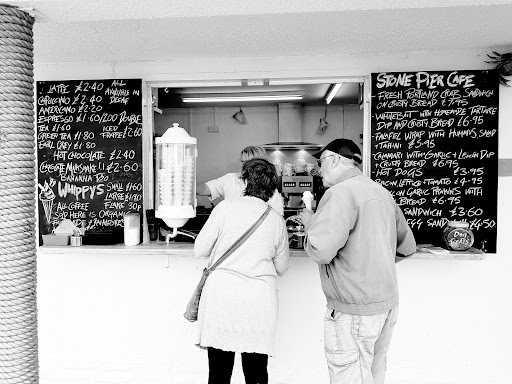 LATTE £2.40 ALL
CAPUCINO £2.40 AVAILABLE IN
AMERICANO £2.20 DECAF
ESPRESSO £1.60/200 DOUBLE
TEA £1.60 ICED
GREEN TEA £1.80 FRAPPE £2.60
EARL GREY £1.80
HOT CHOCOLATE £2.40
BANANA
WHIPPY'S SMALL £1.60
LARGE
ALL COFFEE FLAKE
SOLD HERE IS ORGANIC
STONE PIER CAFE
FRESH PORTLAND CRAB SANDWICH
ON CRUSTY BREAD £7.95
WHITEBAIT WITH HOMEMADE TARTARE
DIP AND CRUSTY BREAD £6.95
FALAFEL WRAP WITH HUMMUS SALAD
+ TAHINI £5.95
CALAMARI WITH GARLIC + LEMON DIP
CRUSTY BREAD £6.95
HOT DOGS £3.75
BACON LETTUCE TOMATO £4.95
GARLIC PRAWNS WITH
BREAD £6.95
SANDWICH £3.60
EGG SAND £4.50
DOG